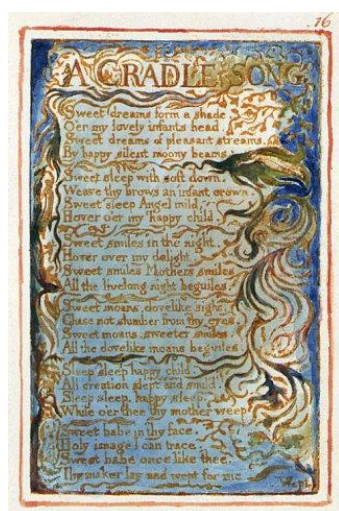 16
A CRADLE SONG
Sweet dreams form a shade
Oer my lovely infants head.
Sweet dreams of pleasant streams,
By happy silent moony beams

Sweet sleep with soft down,
Weave thy brows an infant crown.
Sweet sleep Angel mild,
Hover oer my happy child.

Sweet smiles in the night,
Hover over my delight.
Sweet smiles Mothers smiles
All the livelong night beguiles.

Sweet moans, dovelike sighs,
Chase not slumber from thy eyes.
Sweet moans, sweeter smiles,
All the dovelike moans beguiles.

Sleep sleep happy child.
All creation slept and smil'd.
Sleep sleep, happy sleep,
While oer thee thy mother weep

Sweet babe in thy face,
Holy image I can trace.
Sweet babe once like thee,
Thy maker lay and wept for me
Wept